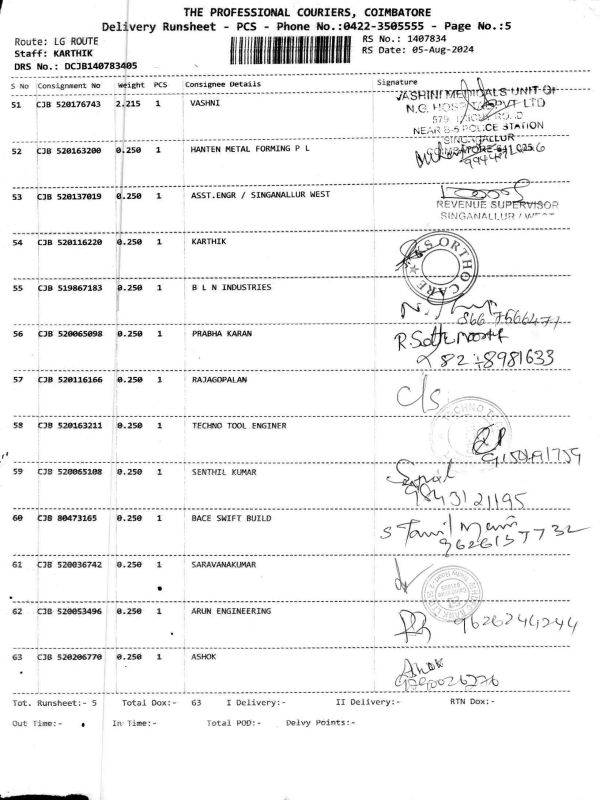 THE PROFESSIONAL COURIERS, COIMBATORE
Delivery Runsheet - PCS - Phone No.:0422-3505555 - Page No.:5
Route: LG ROUTE RS No.: 1407834
Staff: KARTHIK RS Date: 05-Aug-2024
DRS No.: DCJB140783405
S No Consignment No Weight PCS Consignee Details Signature
51 CJB 520176743 2.215 1 VASHNI
VASHINI MEDICALS UNIT OF
N.G. HOSPITAL PVT LTD
NEAR B-5 POLICE STATION
SINGANALLUR
52 CJB 520163200 0.250 1 HANTEN METAL FORMING P L
53 CJB 520137019 0.250 1 ASST.ENGR / SINGANALLUR WEST
REVENUE SUPERVISOR
SINGANALLUR / WEST
54 CJB 520116220 0.250 1 KARTHIK
ORTHO CARE
55 CJB 519867183 0.250 1 B L N INDUSTRIES
56 CJB 520065098 0.250 1 PRABHA KARAN
57 CJB 520116166 0.250 1 RAJAGOPALAN
c/s
58 CJB 520163211 0.250 1 TECHNO TOOL ENGINER
59 CJB 520065108 0.250 1 SENTHIL KUMAR
9843121195
60 CJB 80473165 0.250 1 BACE SWIFT BUILD
61 CJB 520036742 0.250 1 SARAVANAKUMAR
62 CJB 520053496 0.250 1 ARUN ENGINEERING
9626244244
63 CJB 520206770 0.250 1 ASHOK
Ashok
Tot. Runsheet:- 5 Total Dox:- 63 I Delivery:- II Delivery:- RTN Dox:-
Out Time:- In Time:- Total POD:- Delvy Points:-